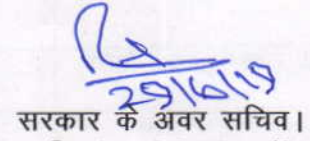 29/6/19
सरकार के अवर सचिव।